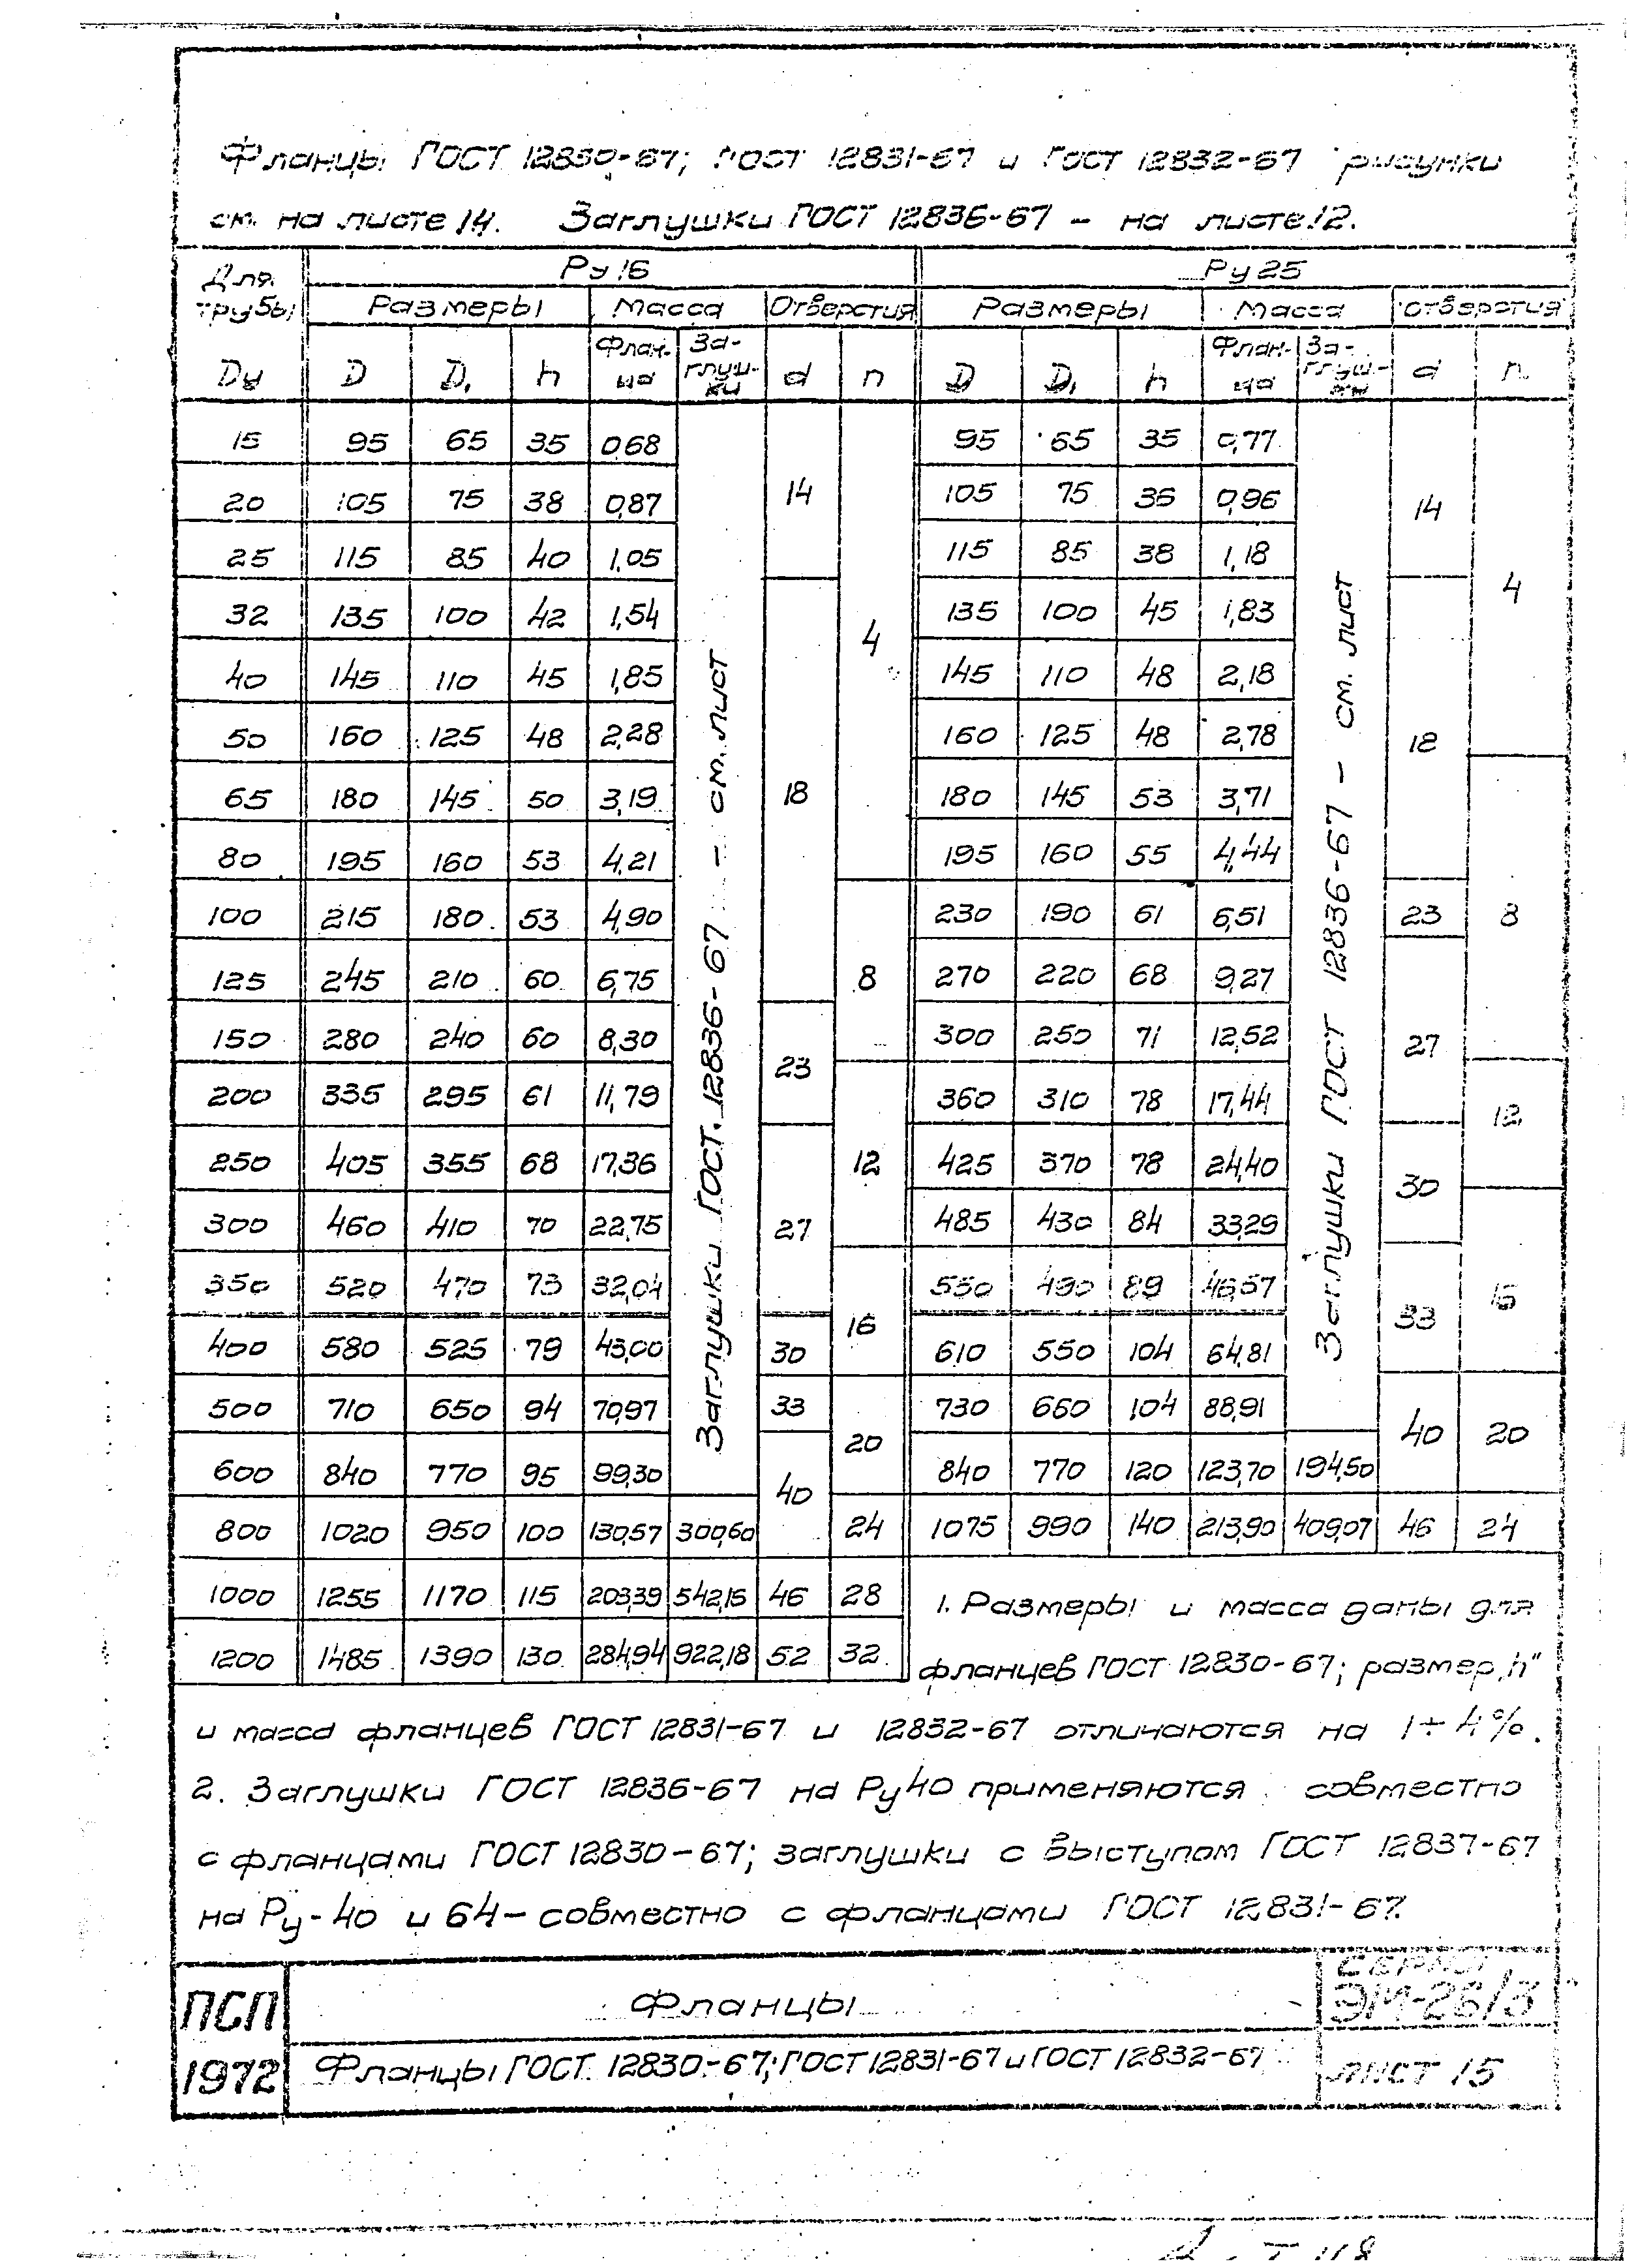 Фланцы ГОСТ 12830-67; ГОСТ 12831-67 и ГОСТ 12832-67 рисунки
см. на листе 14. Заглушки ГОСТ 12836-67 – на листе 12.
Для трубы Ру 16 Ру 25
Размеры Масса Отверстия Размеры Масса отверстия
Ду D D₁ h Фланца Заглушки d n D D₁ h Фланца Заглушки d n
15 95 65 35 0,68 95 65 35 0,77
20 105 75 38 0,87 14 105 75 36 0,96 14
25 115 85 40 1,05 115 85 38 1,18
32 135 100 42 1,54 4 135 100 45 1,83 4
40 145 110 45 1,85 145 110 48 2,18
50 160 125 48 2,28 160 125 48 2,78 18
65 180 145 50 3,19 18 180 145 53 3,71
80 195 160 53 4,21 195 160 55 4,44
100 215 180 53 4,90 230 190 61 6,51 23 8
125 245 210 60 6,75 8 270 220 68 9,27
150 280 240 60 8,30 23 300 250 71 12,52 27
200 335 295 61 11,79 360 310 78 17,44 12
250 405 355 68 17,36 12 425 370 78 24,40 30
300 460 410 70 22,75 27 485 430 84 33,29
350 520 470 73 32,04 16 550 490 89 46,57 33 16
400 580 525 79 43,00 30 610 550 104 64,81
500 710 650 94 70,97 33 20 730 660 104 88,91 40 20
600 840 770 95 99,30 40 840 770 120 123,70 194,50
800 1020 950 100 130,57 300,60 24 1075 990 140 213,90 409,07 46 24
1000 1255 1170 115 203,39 542,15 46 28
1200 1485 1390 130 284,94 922,18 52 32
Заглушки ГОСТ 12836-67 – см. лист
Заглушки ГОСТ 12836-67 – см. лист
1. Размеры и масса даны для
фланцев ГОСТ 12830-67; размер „h"
и масса фланцев ГОСТ 12831-67 и 12832-67 отличаются на 1÷4%.
2. Заглушки ГОСТ 12836-67 на Ру40 применяются совместно
с фланцами ГОСТ 12830-67; заглушки с выступом ГОСТ 12837-67
на Ру-40 и 64 – совместно с фланцами ГОСТ 12831-67.
ПСП
1972
Фланцы
Фланцы ГОСТ 12830-67; ГОСТ 12831-67 и ГОСТ 12832-67
СЕРИЯ
ЭМ-26/3
ЛИСТ 15